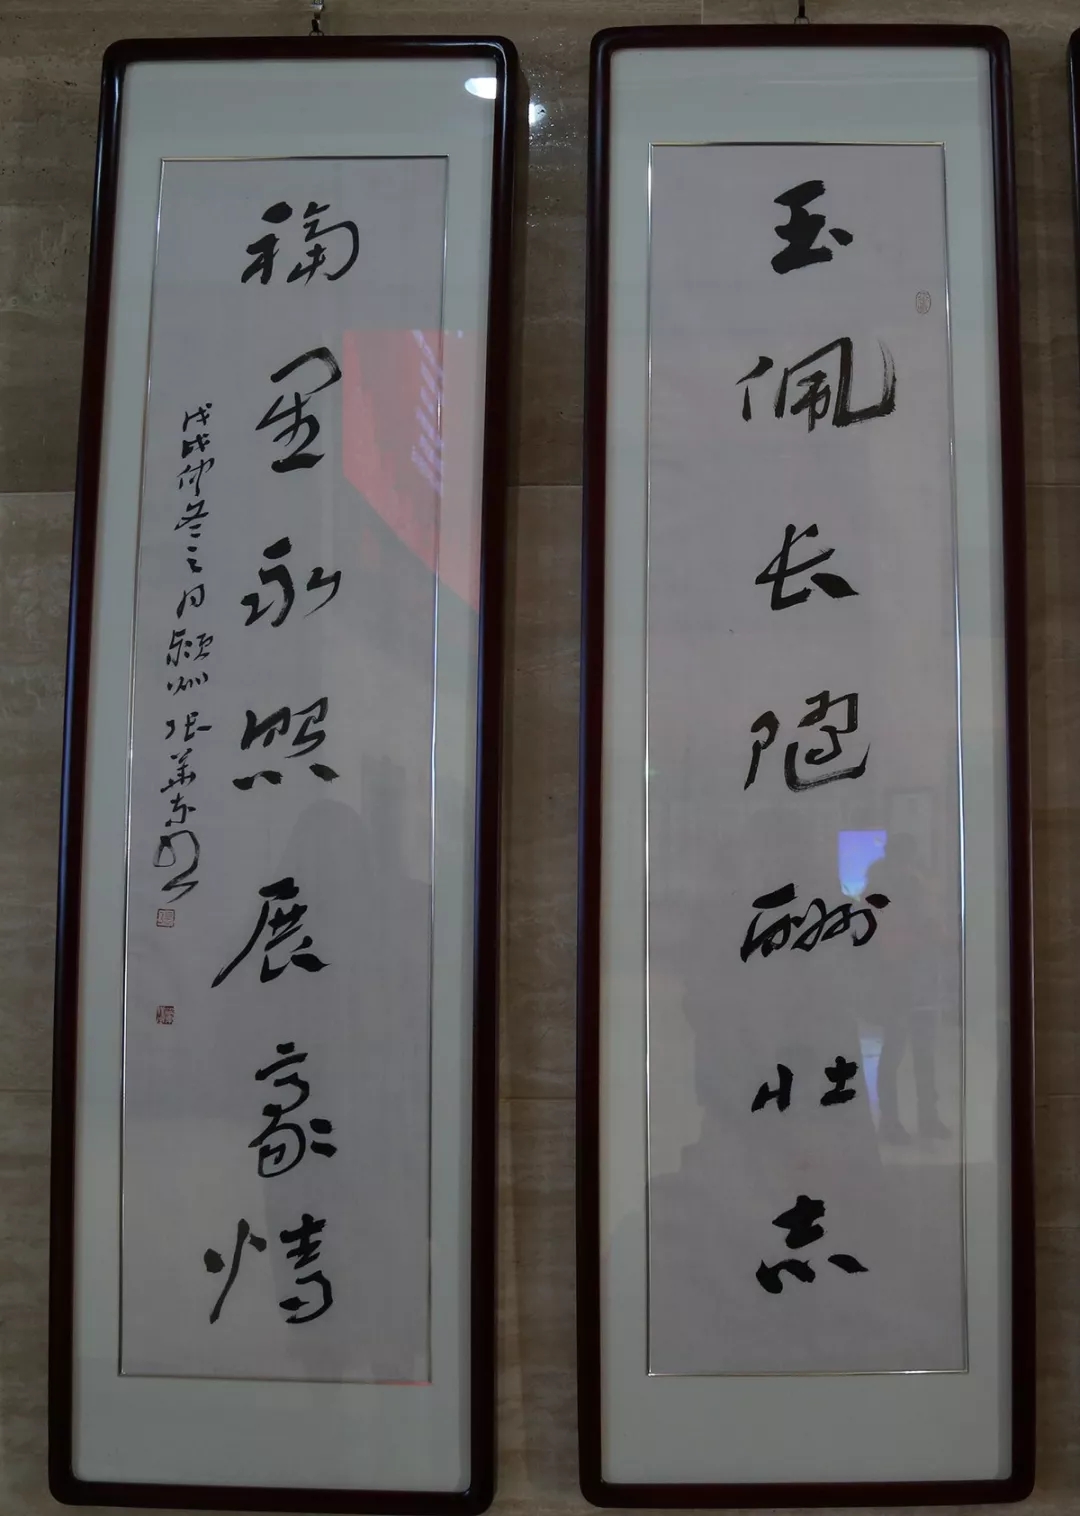 玉佩长随酬壮志
福星永照展豪情
戊戌仲冬之月颍州张华东